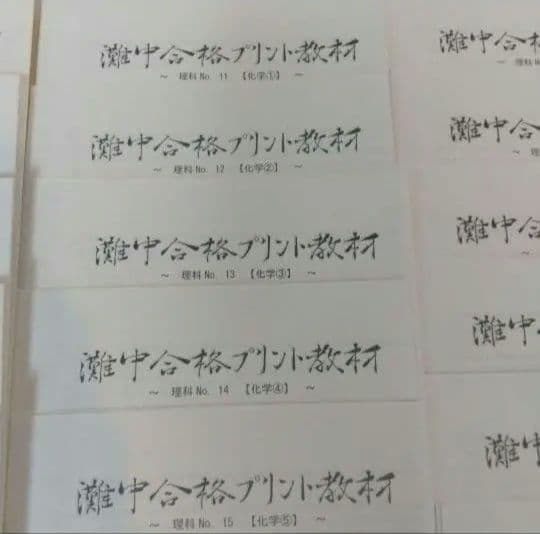 灘中合格プリント教材
～ 理科No. 11 【化学①】 ～
灘中合格プリント教材
～ 理科No. 12 【化学②】 ～
灘中合格プリント教材
～ 理科No. 13 【化学③】 ～
灘中合格プリント教材
～ 理科No. 14 【化学④】 ～
灘中合格プリント教材
～ 理科No. 15 【化学⑤】 ～
灘中合格
～ 理科
灘中合
～ 理
灘中合
～
灘中
灘中